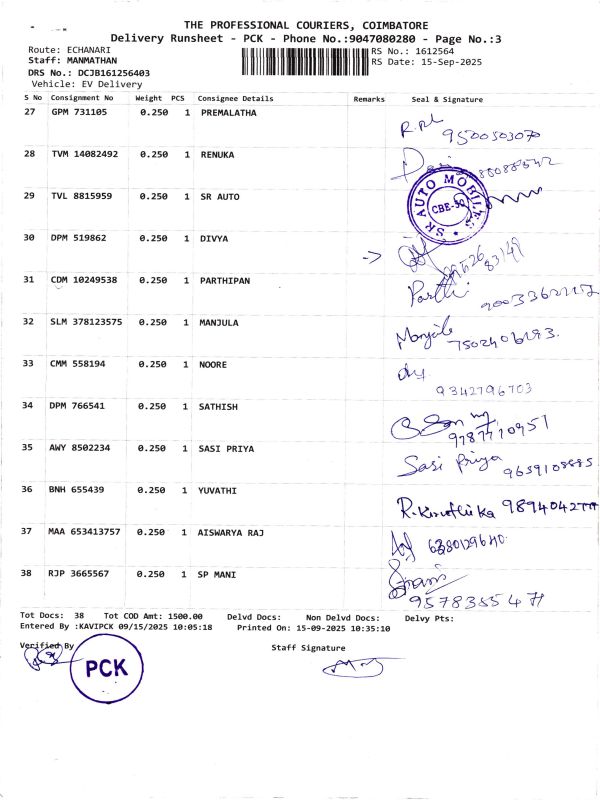 THE PROFESSIONAL COURIERS, COIMBATORE
Delivery Runsheet - PCK - Phone No.:9047080280 - Page No.:3
Route: ECHANARI
Staff: MANMATHAN
DRS No.: DCJB161256403
Vehicle: EV Delivery
RS No.: 1612564
RS Date: 15-Sep-2025
S No Consignment No Weight PCS Consignee Details Remarks Seal & Signature
27 GPM 731105 0.250 1 PREMALATHA
9500503070
28 TVM 14082492 0.250 1 RENUKA
29 TVL 8815959 0.250 1 SR AUTO
SR AUTO MOBILES
CBE-50
30 DPM 519862 0.250 1 DIVYA
31 CDM 10249538 0.250 1 PARTHIPAN
Parthi
32 SLM 378123575 0.250 1 MANJULA
Manjula
7502406193
33 CMM 558194 0.250 1 NOORE
9342796703
34 DPM 766541 0.250 1 SATHISH
9787710951
35 AWY 8502234 0.250 1 SASI PRIYA
Sasi Priya 9659108885
36 BNH 655439 0.250 1 YUVATHI
37 MAA 653413757 0.250 1 AISWARYA RAJ
6380129640
38 RJP 3665567 0.250 1 SP MANI
9578355471
Tot Docs: 38 Tot COD Amt: 1500.00 Delvd Docs: Non Delvd Docs: Delvy Pts:
Entered By :KAVIPCK 09/15/2025 10:05:18 Printed On: 15-09-2025 10:35:10
Verified By
Staff Signature
PCK